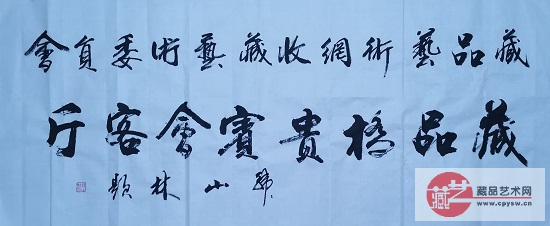 藏品藝術網收藏藝術委員會
藏品橋貴賓會客厅
林題
藏艺
藏品艺术网
www.cpysw.cn